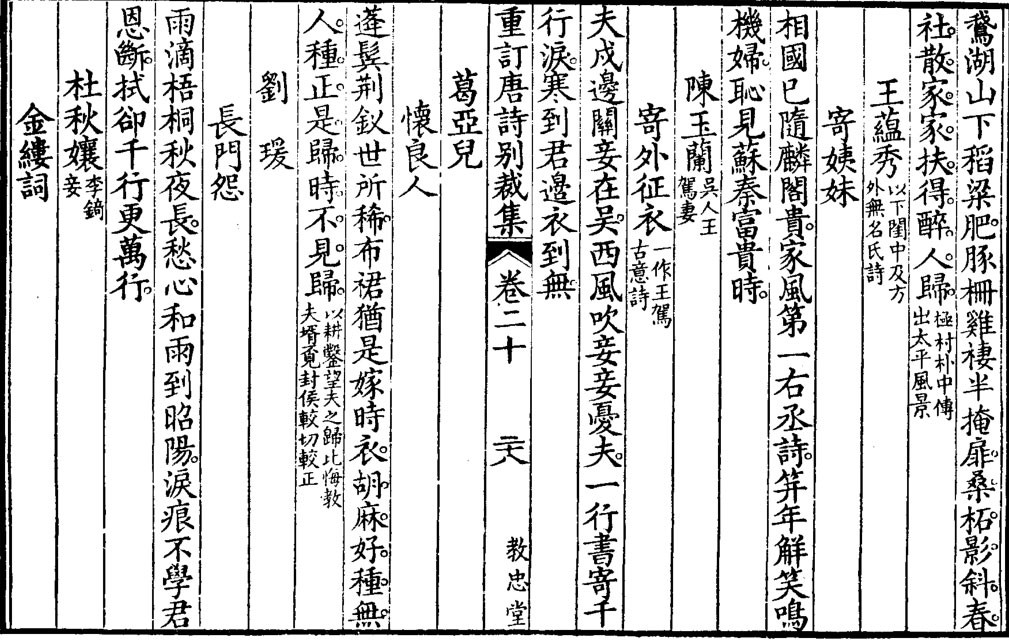 鵞湖山下稻梁肥豚柵雞棲半掩扉桑柘影斜春
社散家家扶得醉人歸極村朴中傳出太平風景
王蘊秀以下閨中及方外無名氏詩
寄姨妹
相國已隨麟閣貴家風第一右丞詩笄年解笑鳴
機婦恥見蘇秦富貴時
陳玉蘭吳人王駕妻
寄外征衣一作王駕古意詩
夫戍邊關妾在吳西風吹妾妾憂夫一行書寄千
行淚寒到君邊衣到無
重訂唐詩别裁集 卷二十 二六 教忠堂
葛亞兒
懷良人
蓬鬓荆釵世所稀布裙猶是嫁時衣胡麻好種無
人種正是歸時不見歸以耕鑿望夫之歸比悔教夫壻覓封侯較切較正
劉瑗
長門怨
雨滴梧桐秋夜長愁心和雨到昭陽淚痕不學君
恩斷拭卻千行更萬行
杜秋孃李錡妾
金縷詞